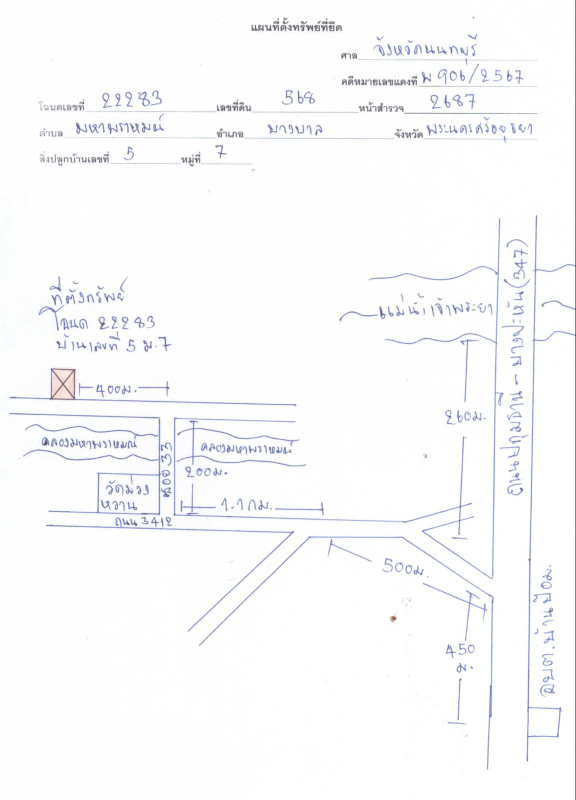 แผนที่ตั้งทรัพย์ที่ยึด
ศาล จังหวัดนนทบุรี
คดีหมายเลขแดงที่ พ 906/2567
โฉนดเลขที่ 22283 เลขที่ดิน 568 หน้าสำรวจ 2687
ตำบล มหาพราหมณ์ อำเภอ บางบาล จังหวัด พระนครศรีอยุธยา
สิ่งปลูกบ้านเลขที่ 5 หมู่ที่ 7
ที่ตั้งทรัพย์
โฉนด 22283
บ้านเลขที่ 5 ม.7
400ม.
แม่น้ำเจ้าพระยา
ถนนปทุมธานี - บางปะหัน (347)
260ม.
คลองมหาพราหมณ์
ซอย 33
คลองมหาพราหมณ์
200ม.
วัดม่วง
หวาน
1.1 กม.
ถนน 3412
500ม.
450
ม.
อบต.บ้านป้อม